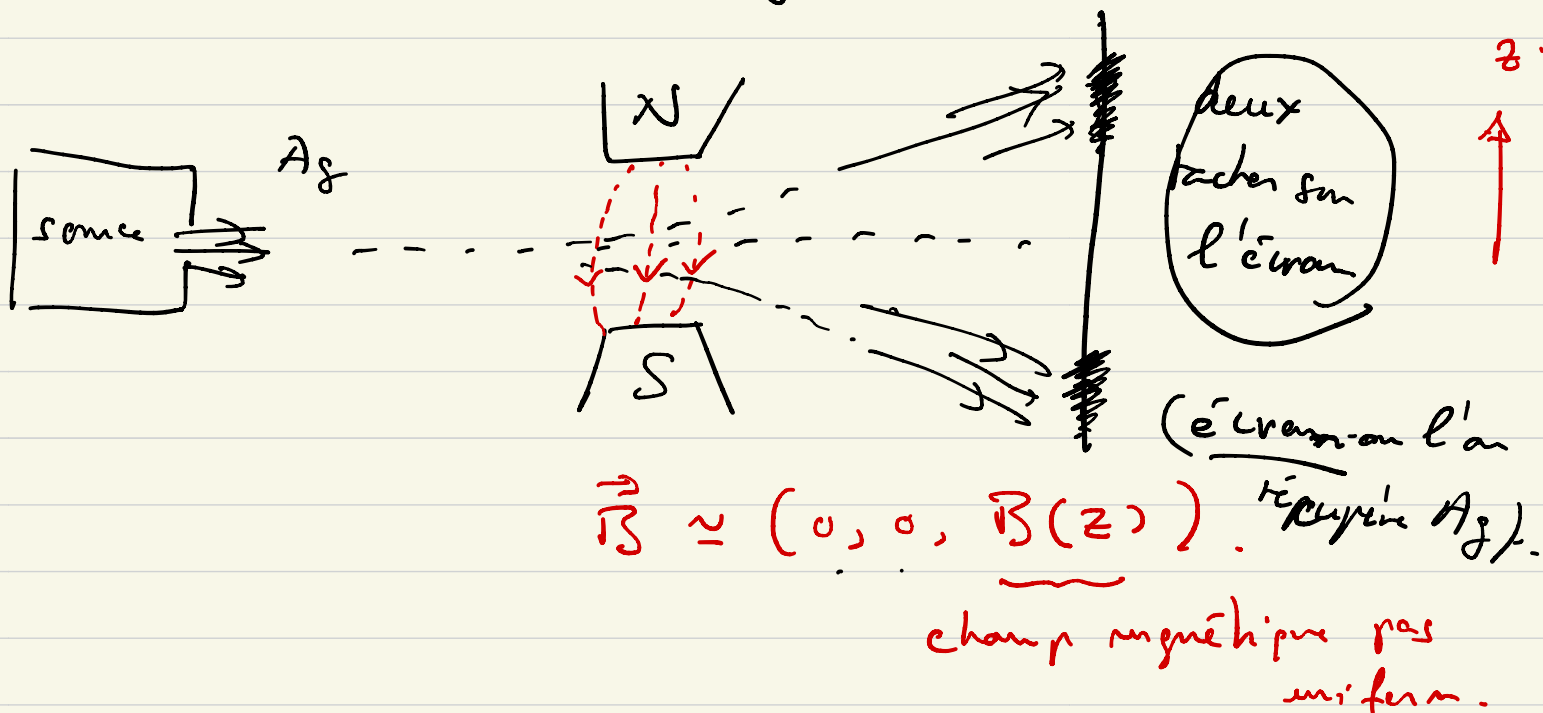 z
N
Ag
deux
taches sur
l'écran
source
S
(écran où l'on
récupère Ag).
B⃗ ≃ (0, 0, B(z)).
champ magnétique pas
uniform.